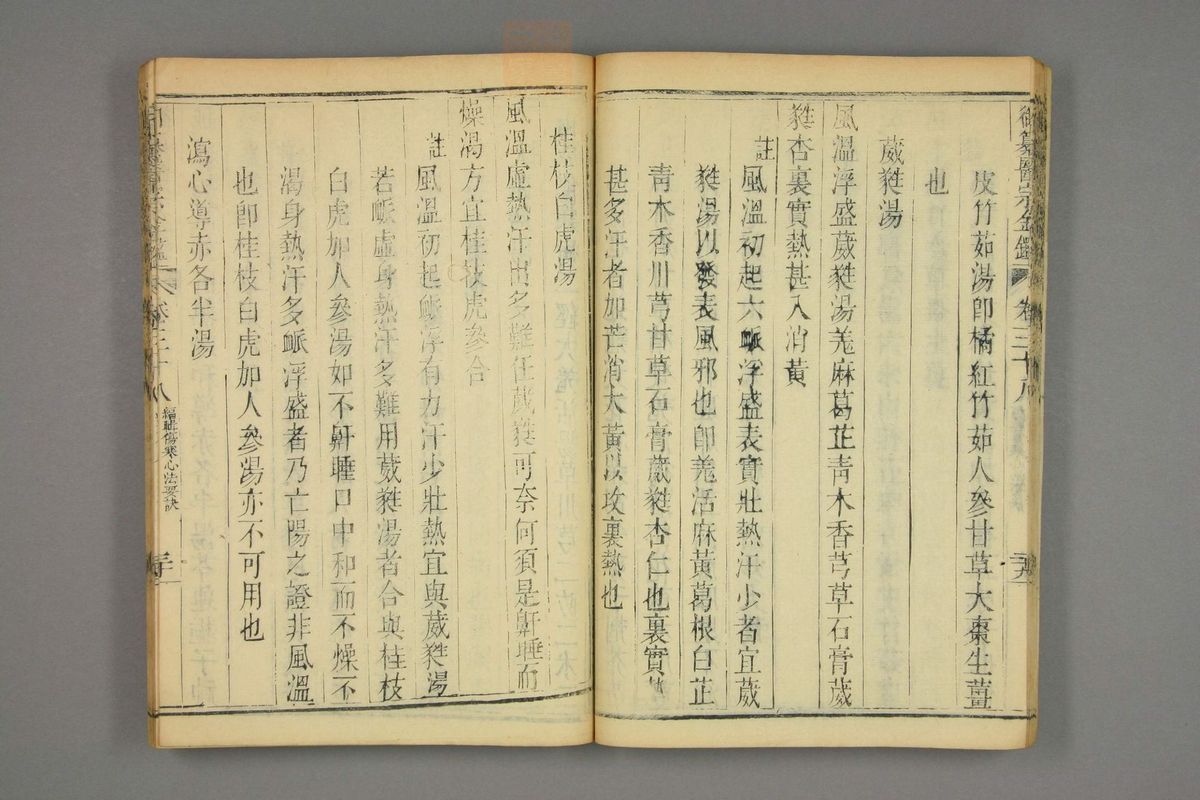 御纂醫宗金鑑 卷三十八
皮竹茹湯卽橘紅竹茹人參甘草大棗生薑
也
葳蕤湯
風溫浮盛葳蕤湯羗麻葛芷靑木香芎草石膏葳
蕤杏裏實熱甚入消黃
註風溫初起六脈浮盛表實壯熱汗少者宜葳
蕤湯以發表風邪也卽羗活麻黃葛根白芷
靑木香川芎甘草石膏葳蕤杏仁也裏實熱
甚多汗者加芒消大黃以攻裏熱也
桂枝白虎湯
風溫虛熱汗出多難任葳蕤可奈何須是鼾睡而
燥渴方宜桂枝虎參合
註風溫初起脈浮有力汗少壯熱宜與葳蕤湯
若脈虛身熱汗多難用葳蕤湯者合與桂枝
白虎加人參湯如不鼾睡口中和而不燥不
渴身熱汗多脈浮盛者乃亡陽之證非風溫
也卽桂枝白虎加人參湯亦不可用也
瀉心導赤各半湯
卷三十八 編輯傷寒心法要訣